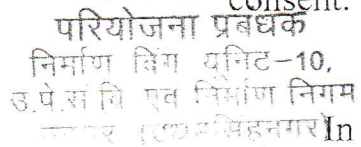 consent.
परियोजना प्रबंधक
निर्माण विंग यूनिट-10,
उ.पे.सं वि एवं निर्माण निगम
(ऊधमसिंहनगर) In